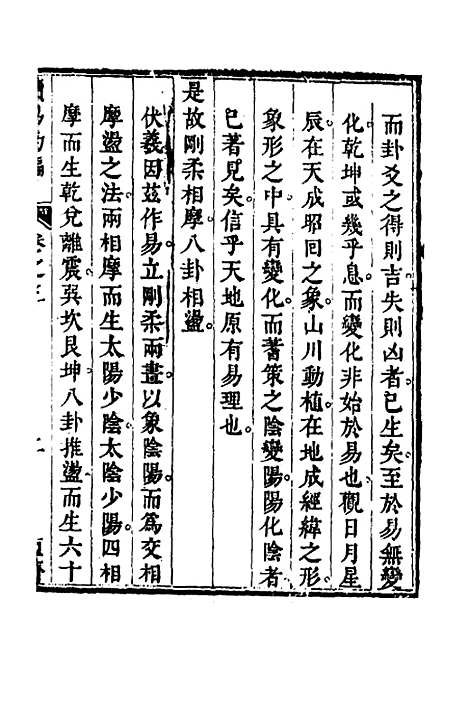 而卦爻之得則吉失則凶者已生矣至於易無變
化乾坤或幾乎息而變化非始於易也觀日月星
辰在天成昭回之象山川動植在地成經緯之形
象形之中具有變化而蓍策之陰變陽陽化陰者
已著見矣信乎天地原有易理也
是故剛柔相摩八卦相盪
伏羲因茲作易立剛柔兩畫以象陰陽而為交相
摩盪之法兩相摩而生太陽少陰太陰少陽四相
摩而生乾兌離震巽坎艮坤八卦推盪而生六十